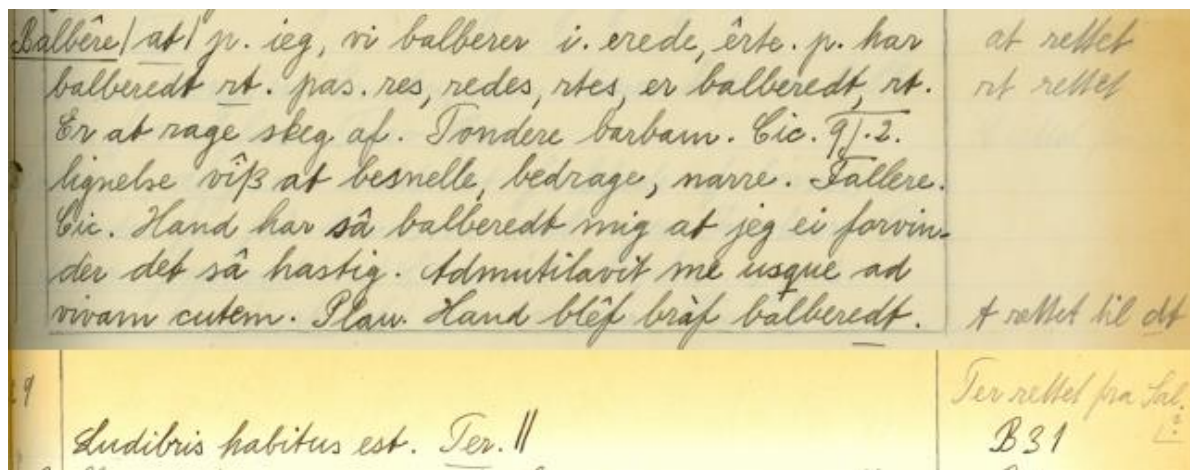 Balbêre/at/ p. ieg, vi balberer i. erede, êrte. p. har at rettet
balberedt rt. pas. res, redes, rtes, er balberedt, rt. rt rettet
Er at rage skeg af. Tondere barbam. Cic. 9/.2.
lignelse vîß at besnelle, bedrage, narre. Fallere.
Cic. Hand har sâ balberedt mig at jeg ei forvin-
der det sâ hastig. Admutilavit me usque ad
vivam cutem. Plau. Hand blêf bràf balberedt. t rettet til dt
9 Ter rettet fra Sal.
Ludibris habitus est. Ter. || B31